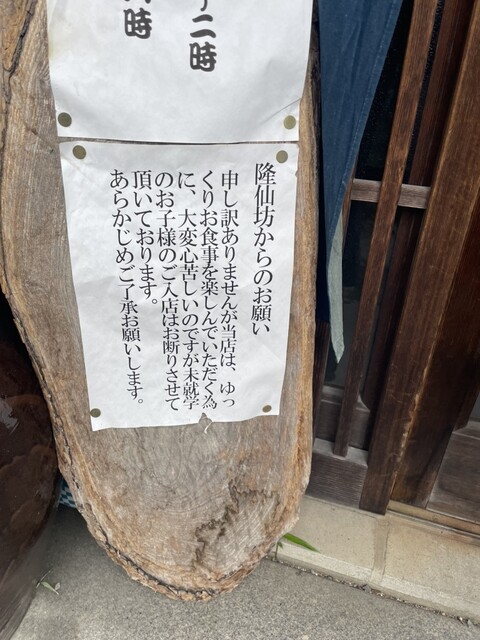 二時
時
隆仙坊からのお願い
申し訳ありませんが当店は、ゆっ
くりお食事を楽しんでいただく為
に、大変心苦しいのですが未就学
のお子様のご入店はお断りさせて
頂いております。
あらかじめご了承お願いします。